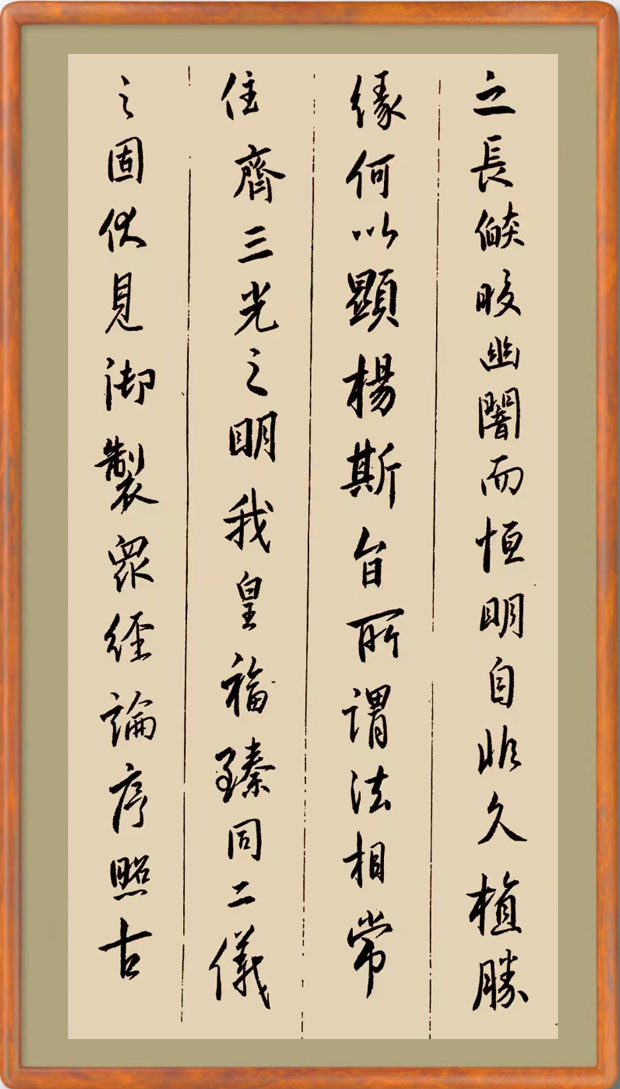 之長燄皎幽闇而恒明自非久植勝
緣何以顯楊斯旨所謂法相常
住齊三光之明我皇福臻同二儀
之固伏見御製眾經論序照古